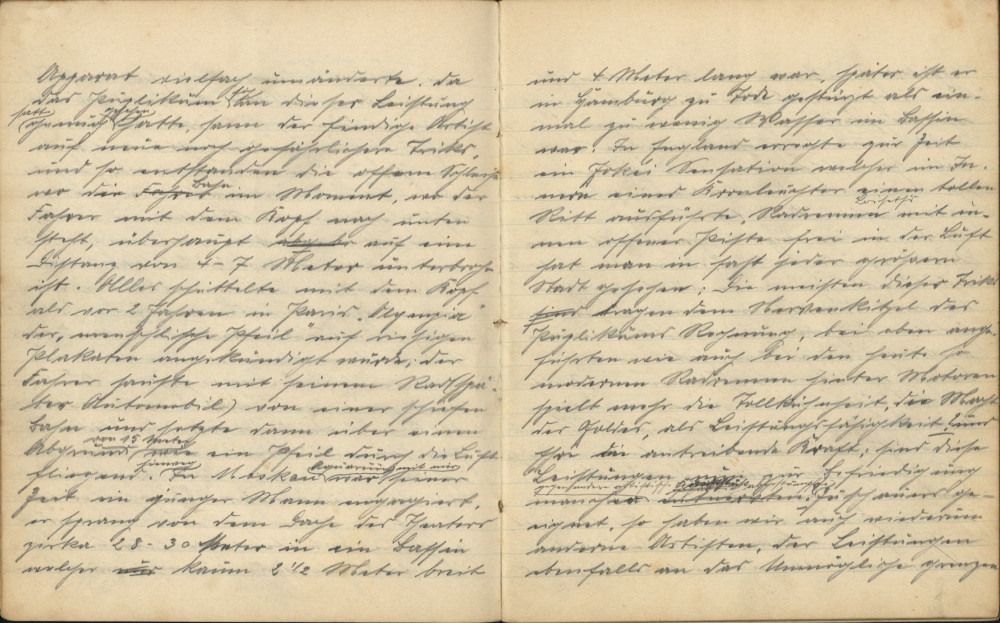 Apparat vielfach umänderte. Da
das Püplikum sich an dieser Leistung
satt gesehen
hatte, sann der findige Artist
auf neue noch gefährlichere Triks,
und so entstanden die offenen Schleifen
wo die Bahn im Moment, wo der
Fahrer mit dem Kopf nach unten
steht, überhaupt auf eine
Distanz von 4-7 Meter unterbrochen
ist. Alles schüttelte mit dem Kopf
als vor 2 Jahren in Paris „Olympia"
der „menschliche Pfeil" auf riesigen
Plakaten angekündigt wurde; der
Fahrer sauste mit seinem Rad (spä-
ter Automobil) von einer schiefen
Bahn und setzte dann über einen
von 15 Meter
Abgrund wie ein Pfeil durch die Luft
hinweg
fliegend. In Moskau war seiner
Zeit ein junger Mann engagiert,
er sprang von dem Dache des Theaters
zirka 28-30 Meter in ein Bassin
welcher kaum 2 1/2 Meter breit
und 4 Meter lang war, später ist er
in Hamburg zu Tode gestürzt als ein-
mal zu wenig Wasser im Bassin
war. In England erregte zur Zeit
ein Jokei Sensation welcher im In-
nern eines Kronleuchter einen tollen
Ritt ausführte, Radrennen mit in-
nen offener Piste frei in der Luft
hat man in fast jeder größern
Stadt gesehen; die meisten dieser Triks
tragen dem Nervenkitzel des
Püplikums Rechnung, bei oben ange-
führten wie auch bei den heute so
modernen Radrennen hinter Motoren
spielt mehr die Tollkühnheit, die Macht
des Goldes, als Leistungsfähigkeit und
Ehre die antreibende Kraft; sind diese
Leistungen zur Befriedigung
mancher Zuschauers ge-
eignet, so haben wir auch wiederum
andere Artisten, der Leistungen
ebenfalls an das Unmögliche grenzen